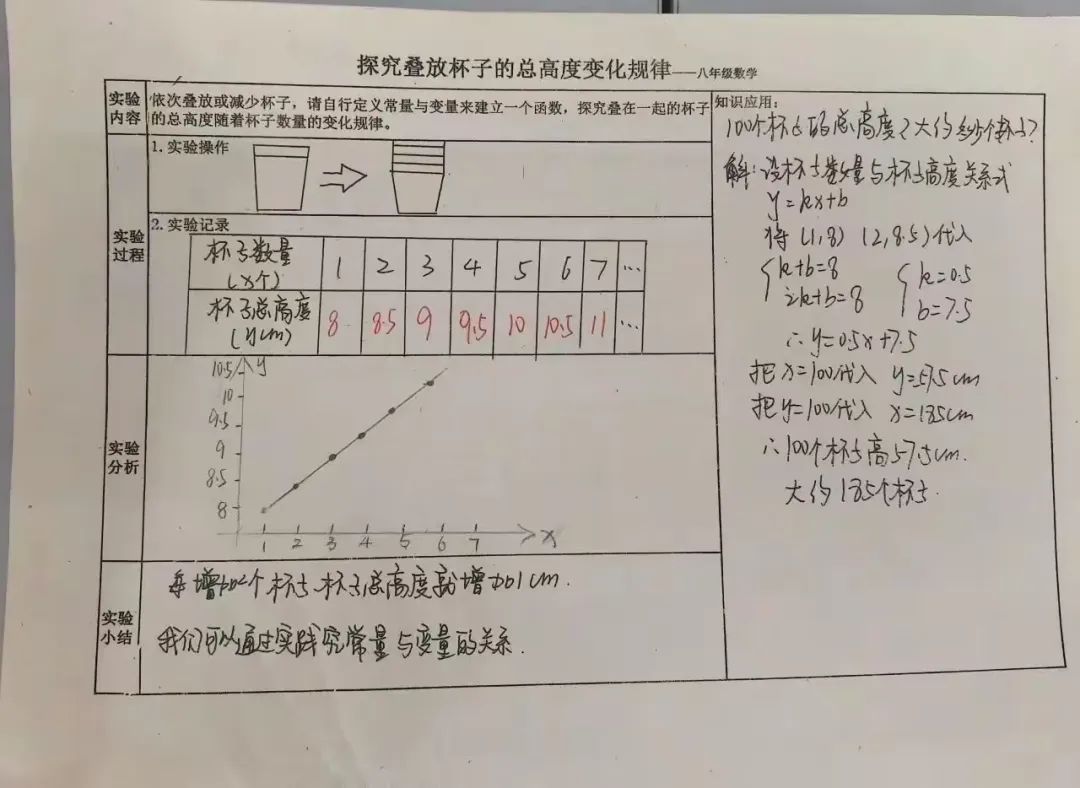 探究叠放杯子的总高度变化规律——八年级数学
实验内容
依次叠放或减少杯子，请自行定义常量与变量来建立一个函数，探究叠在一起的杯子
的总高度随着杯子数量的变化规律。
实验过程
1. 实验操作
2. 实验记录
杯子数量(x个) 1 2 3 4 5 6 7 …
杯子总高度(ycm) 8 8.5 9 9.5 10 10.5 11 …
实验分析
y
10.5
10
9.5
9
8.5
8
1 2 3 4 5 6 7 x
实验小结
每增加2个杯子,杯子总高度就增加1cm.
我们可以通过实践究常量与变量的关系.
知识应用：
100个杯子的总高度?大约多少个杯子?
解:设杯子数量与杯子高度关系式
y=kx+b
将(1,8) (2,8.5)代入
k+b=8 k=0.5
2k+b=8 b=7.5
∴y=0.5x+7.5
把x=100代入 y=57.5cm
把y=100代入 x=185cm
∴100个杯子高57.5cm.
大约185个杯子.